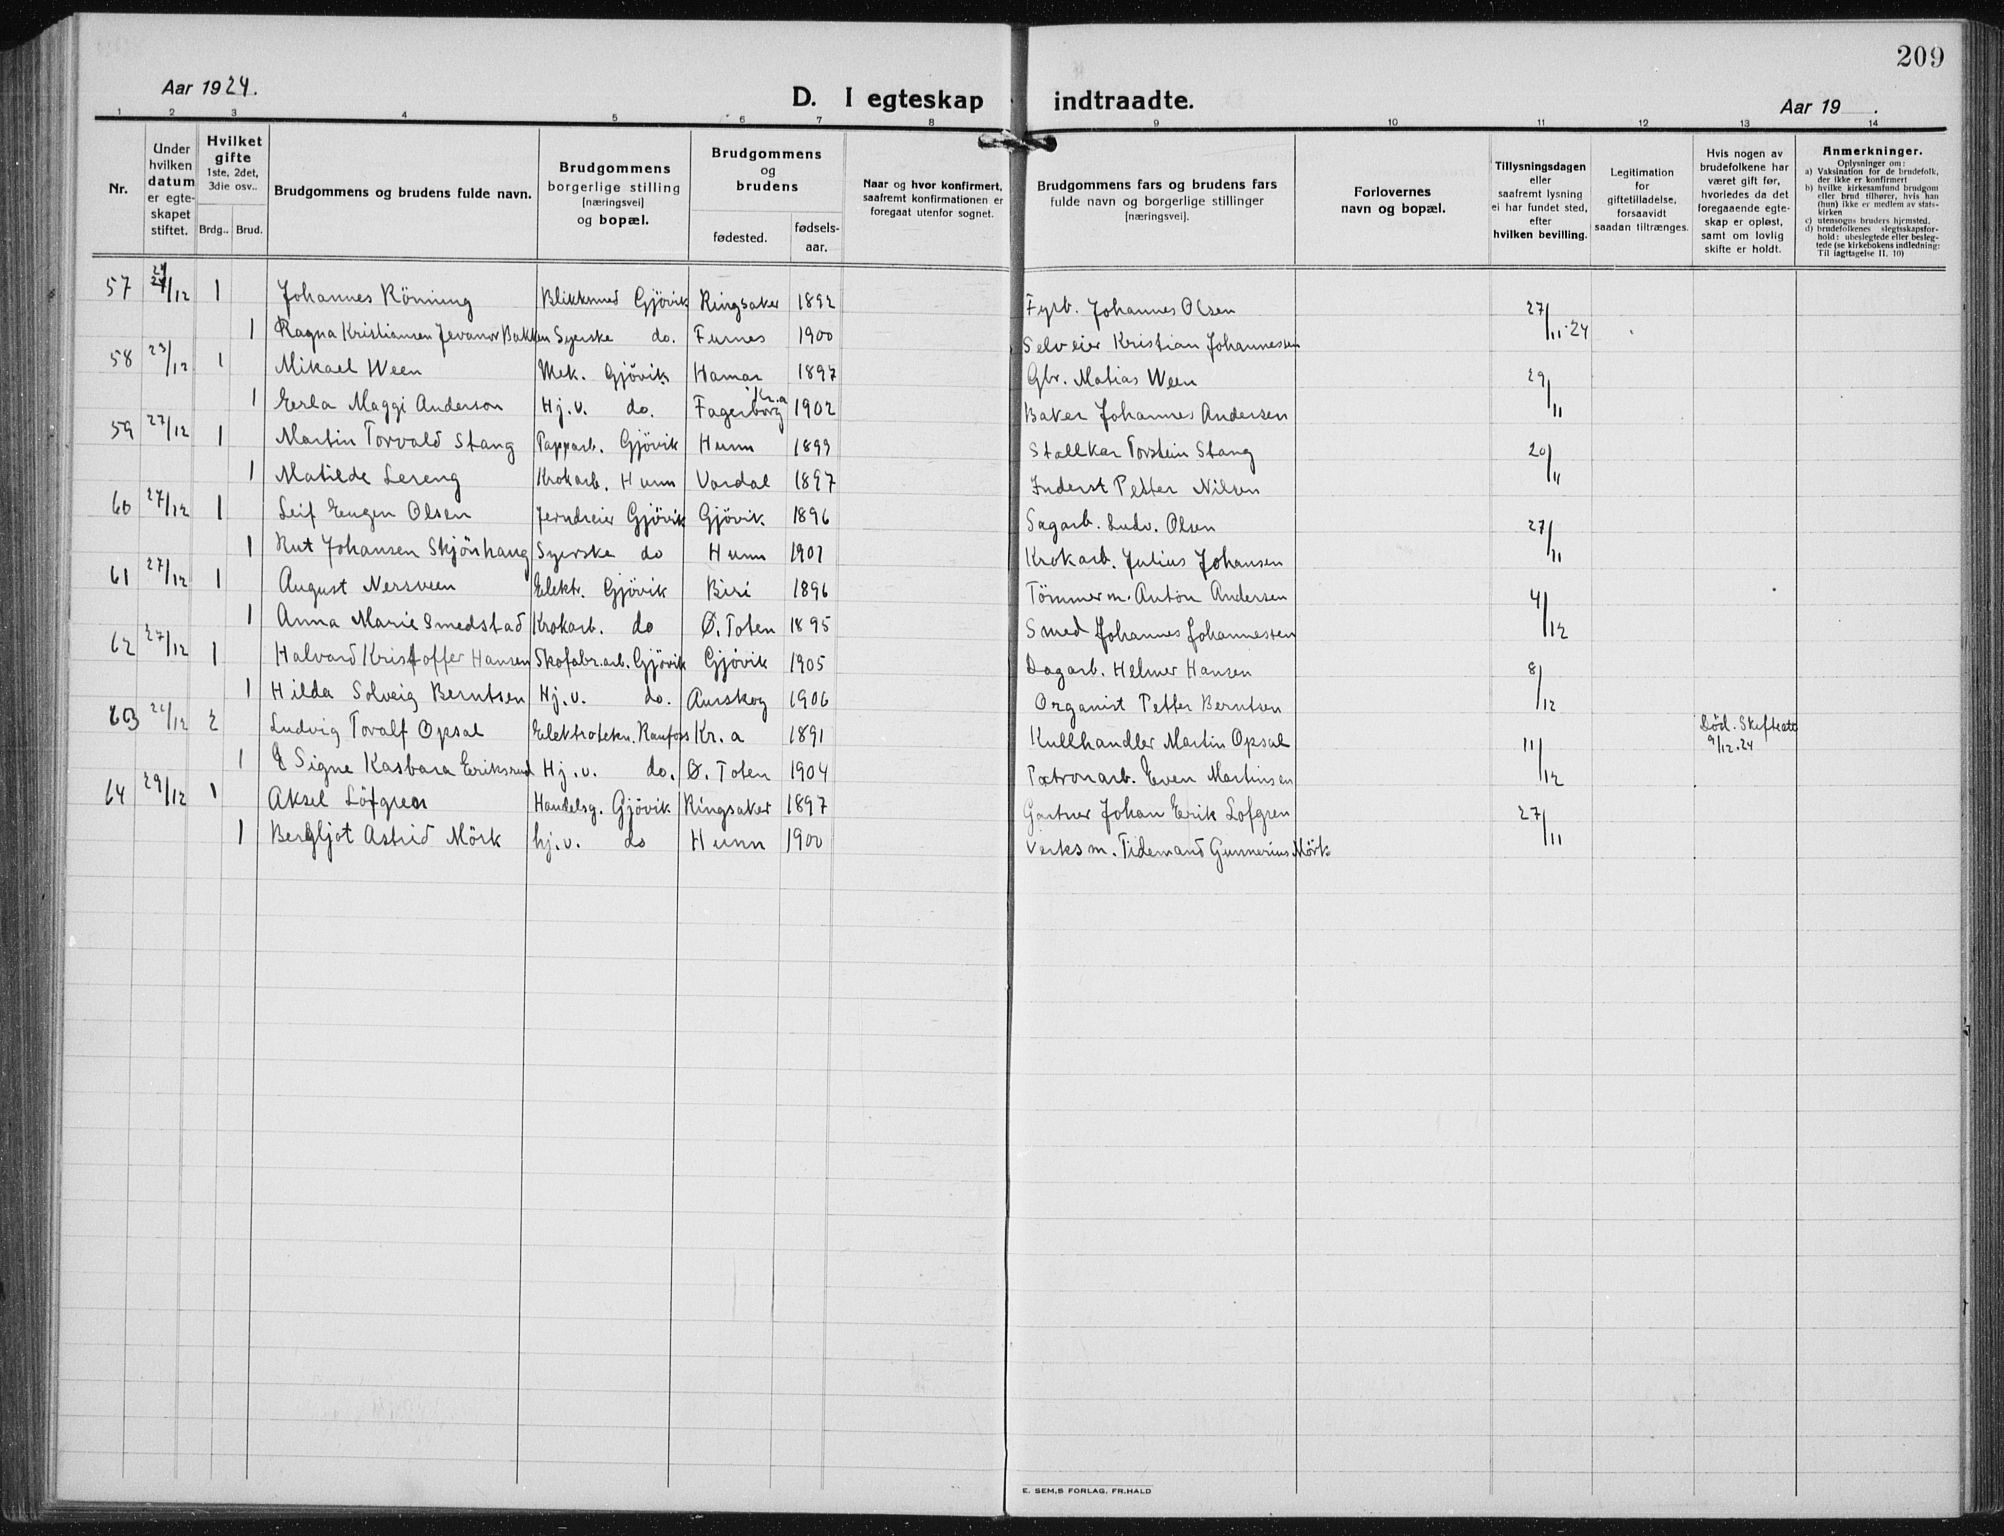 209
Aar 1924.
D. I egteskap indtraadte.
Aar 19 .
1 2 3 4 5 6 7 8 9 10 11 12 13 14
Nr.
Under hvilken datum er egte- skapet stiftet.
Hvilket gifte 1ste, 2det, 3die osv..
Brdg.. Brud.
Brudgommens og brudens fulde navn.
Brudgommens borgerlige stilling [næringsvei] og bopæl.
Brudgommens og brudens
fødested.
fødsels- aar.
Naar og hvor konfirmert, saafremt konfirmationen er foregaat utenfor sognet.
Brudgommens fars og brudens fars fulde navn og borgerlige stillinger [næringsvei].
Forlovernes navn og bopæl.
Tillysningsdagen eller saafremt lysning ei har fundet sted, efter hvilken bevilling.
Legitimation for giftetilladelse, forsaavidt saadan tiltrænges.
Hvis nogen av brudefolkene har været gift før, hvorledes da det foregaaende egte- skap er opløst, samt om lovlig skifte er holdt.
Anmerkninger.
Oplysninger om:
a) Vaksination for de brudefolk, der ikke er konfirmert
b) hvilke kirkesamfund brudgom eller brud tilhører, hvis han (hun) ikke er medlem av stats- kirken
c) utensogns bruders hjemsted.
d) brudefolkenes slegtsskapsfor- hold: ubeslegtede eller besleg- tede (se kirkebokens indledning: Til iagttagelse II. 10)
57 24/12 1 Johannes Rönning Blikksmed Gjövik Ringsaker 1892 Fyrb. Johannes Olsen 27/11.24
1 Ragna Kristiansen Bakken Syerske do. Furnes 1900 Selveier Kristian Johannessen
58 23/12 1 Mikael Ween Mek. Gjövik Hamar 1897 Gbr. Matias Ween 29/11
1 Erla Maggi Anderson Hj.v. do. Fagerborg Kr.a 1902 Baker Johannes Andersen
59 27/12 1 Martin Torvald Stang Papparb. Gjövik Hunn 1899 Stallkar Torstein Stang 20/11
1 Matilde Lereng Krokarb. Hunn Vardal 1897 Inderst Petter Nilsen
60 27/12 1 Leif Eugen Olsen Jerndreier Gjövik Gjövik 1896 Sagarb. Ludv. Olsen 27/11
1 Rut Johansen Skjönhaug Syerske do Hunn 1901 Krokarb. Julius Johansen
61 27/12 1 August Nersveen Elektr. Gjövik Biri 1896 Tömmerm. Anton Andersen 4/12
1 Anna Marie Smedstad Krokarb. do Ø. Toten 1895 Smed Johannes Johannessen
62 27/12 1 Halvard Kristoffer Hansen Skofabr.arb. Gjövik Gjövik 1905 Dagarb. Helmer Hansen 8/12
1 Hilda Solveig Berntsen Hj.v. do. Aurskog 1906 Organist Petter Berntsen
63 22/12 2 Ludvig Toralf Opsal Elektrotekn. Raufoss Kr.a 1891 Kullhandler Martin Opsal 11/12 Död. Skifteatt 9/12.24
1 Signe Kasbara Eriksrud Hj.v. do. Ø. Toten 1904 Patronarb. Even Martinsen
64 29/12 1 Aksel Löfgren Handelsg. Gjövik Ringsaker 1897 Gartner Johan Erik Lofgren 27/11
1 Bergljot Astrid Mörk hj.v. do Hunn 1900 Verksm. Tidemand Gunnerius Mörk
E. SEM,S FORLAG, FR.HALD